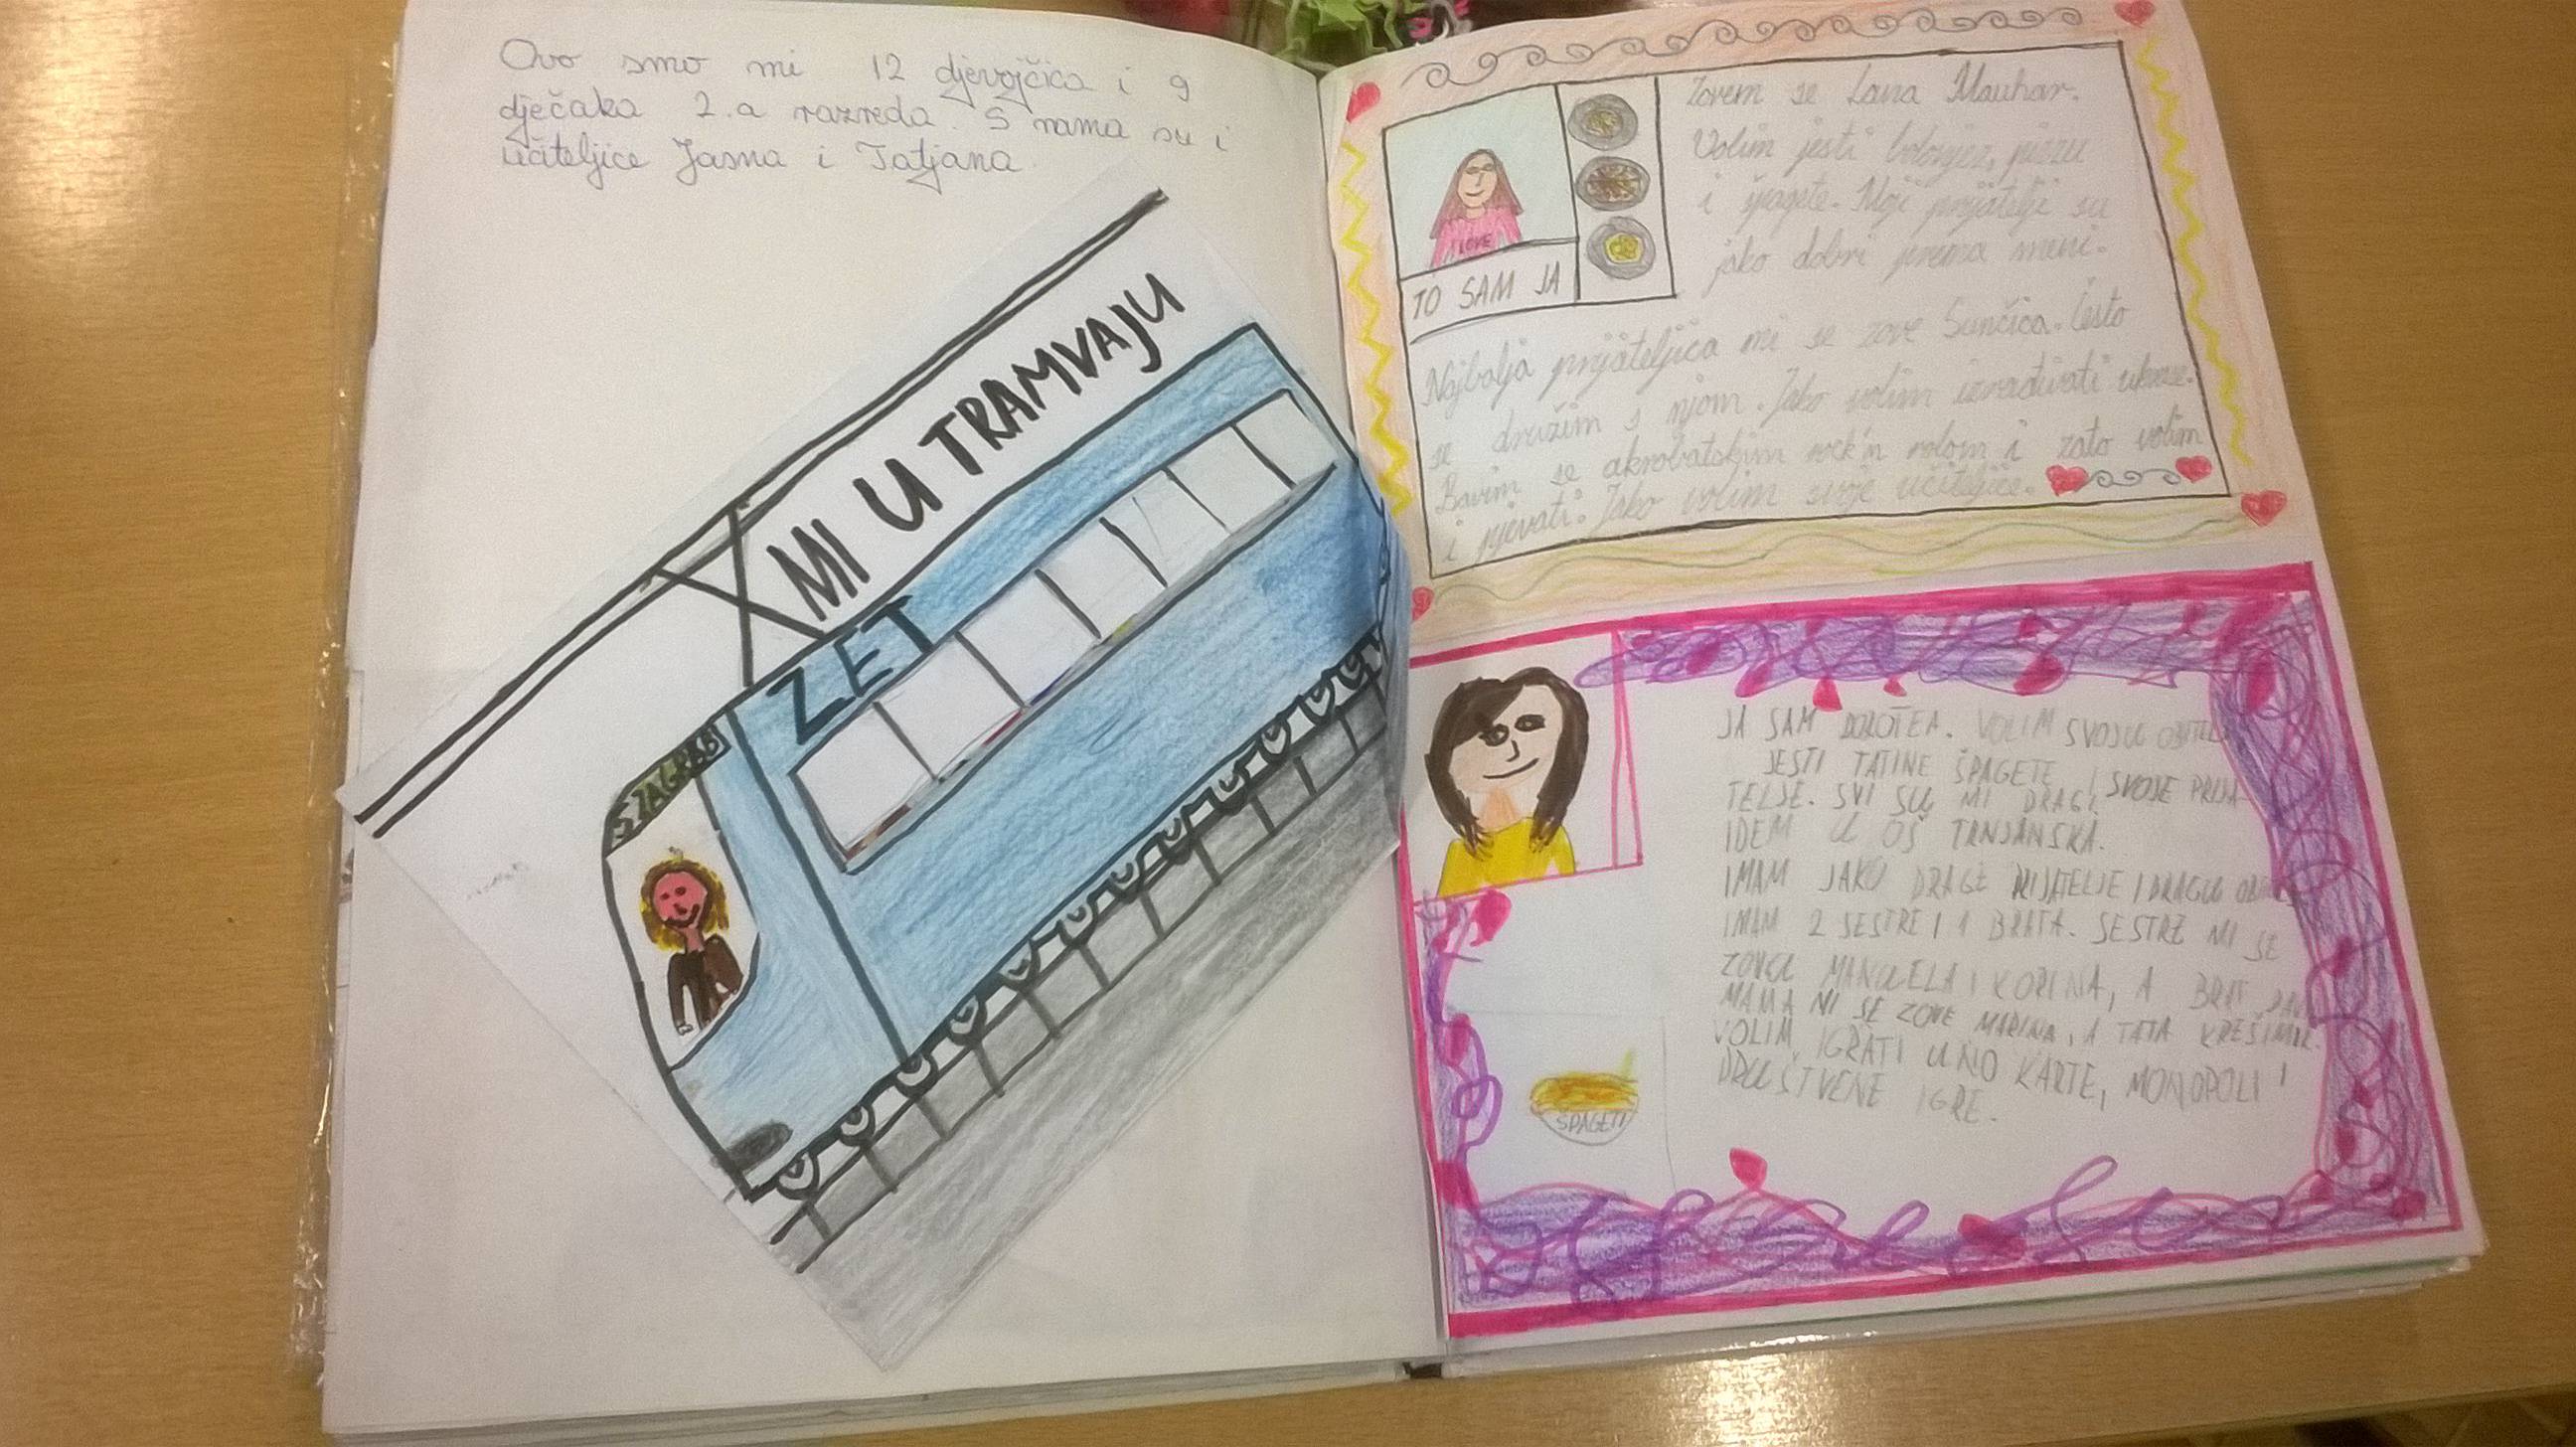 Ovo smo mi 12 djevojčica i 9
dječaka 2.a razreda. S nama su i
učiteljice Jasna i Tatjana
MI U TRAMVAJU
ZET
ZAGREB
LOVE
TO SAM JA
Zovem se Lana Mauhar.
Volim jesti bolonjez, pizzu
i špagete. Moji prijatelji su
jako dobri prema meni.
Najbolja prijateljica mi se zove Sunčica. Često
se družim s njom. Jako volim izrađivati ukrase.
Bavim se akrobatskim rock'n rolom i zato volim
i pjevati. Jako volim svoje učiteljice.
JA SAM DOROTEA. VOLIM SVOJU OBITELJ
JESTI TATINE ŠPAGETE I SVOJE PRIJA-
TELJE. SVI SU MI DRAGI.
IDEM U OŠ TRNJANSKA.
IMAM JAKO DRAGE PRIJATELJE I DRAGU
IMAM 2 SESTRE I 1 BRATA. SESTRE MI SE
ZOVU MANUELA I KORINA, A BRAT
MAMA MI SE ZOVE MARINA, A TATA KREŠIMIR.
VOLIM IGRATI UNO KARTE, MONOPOLI I
DRUŠTVENE IGRE.
ŠPAGETI